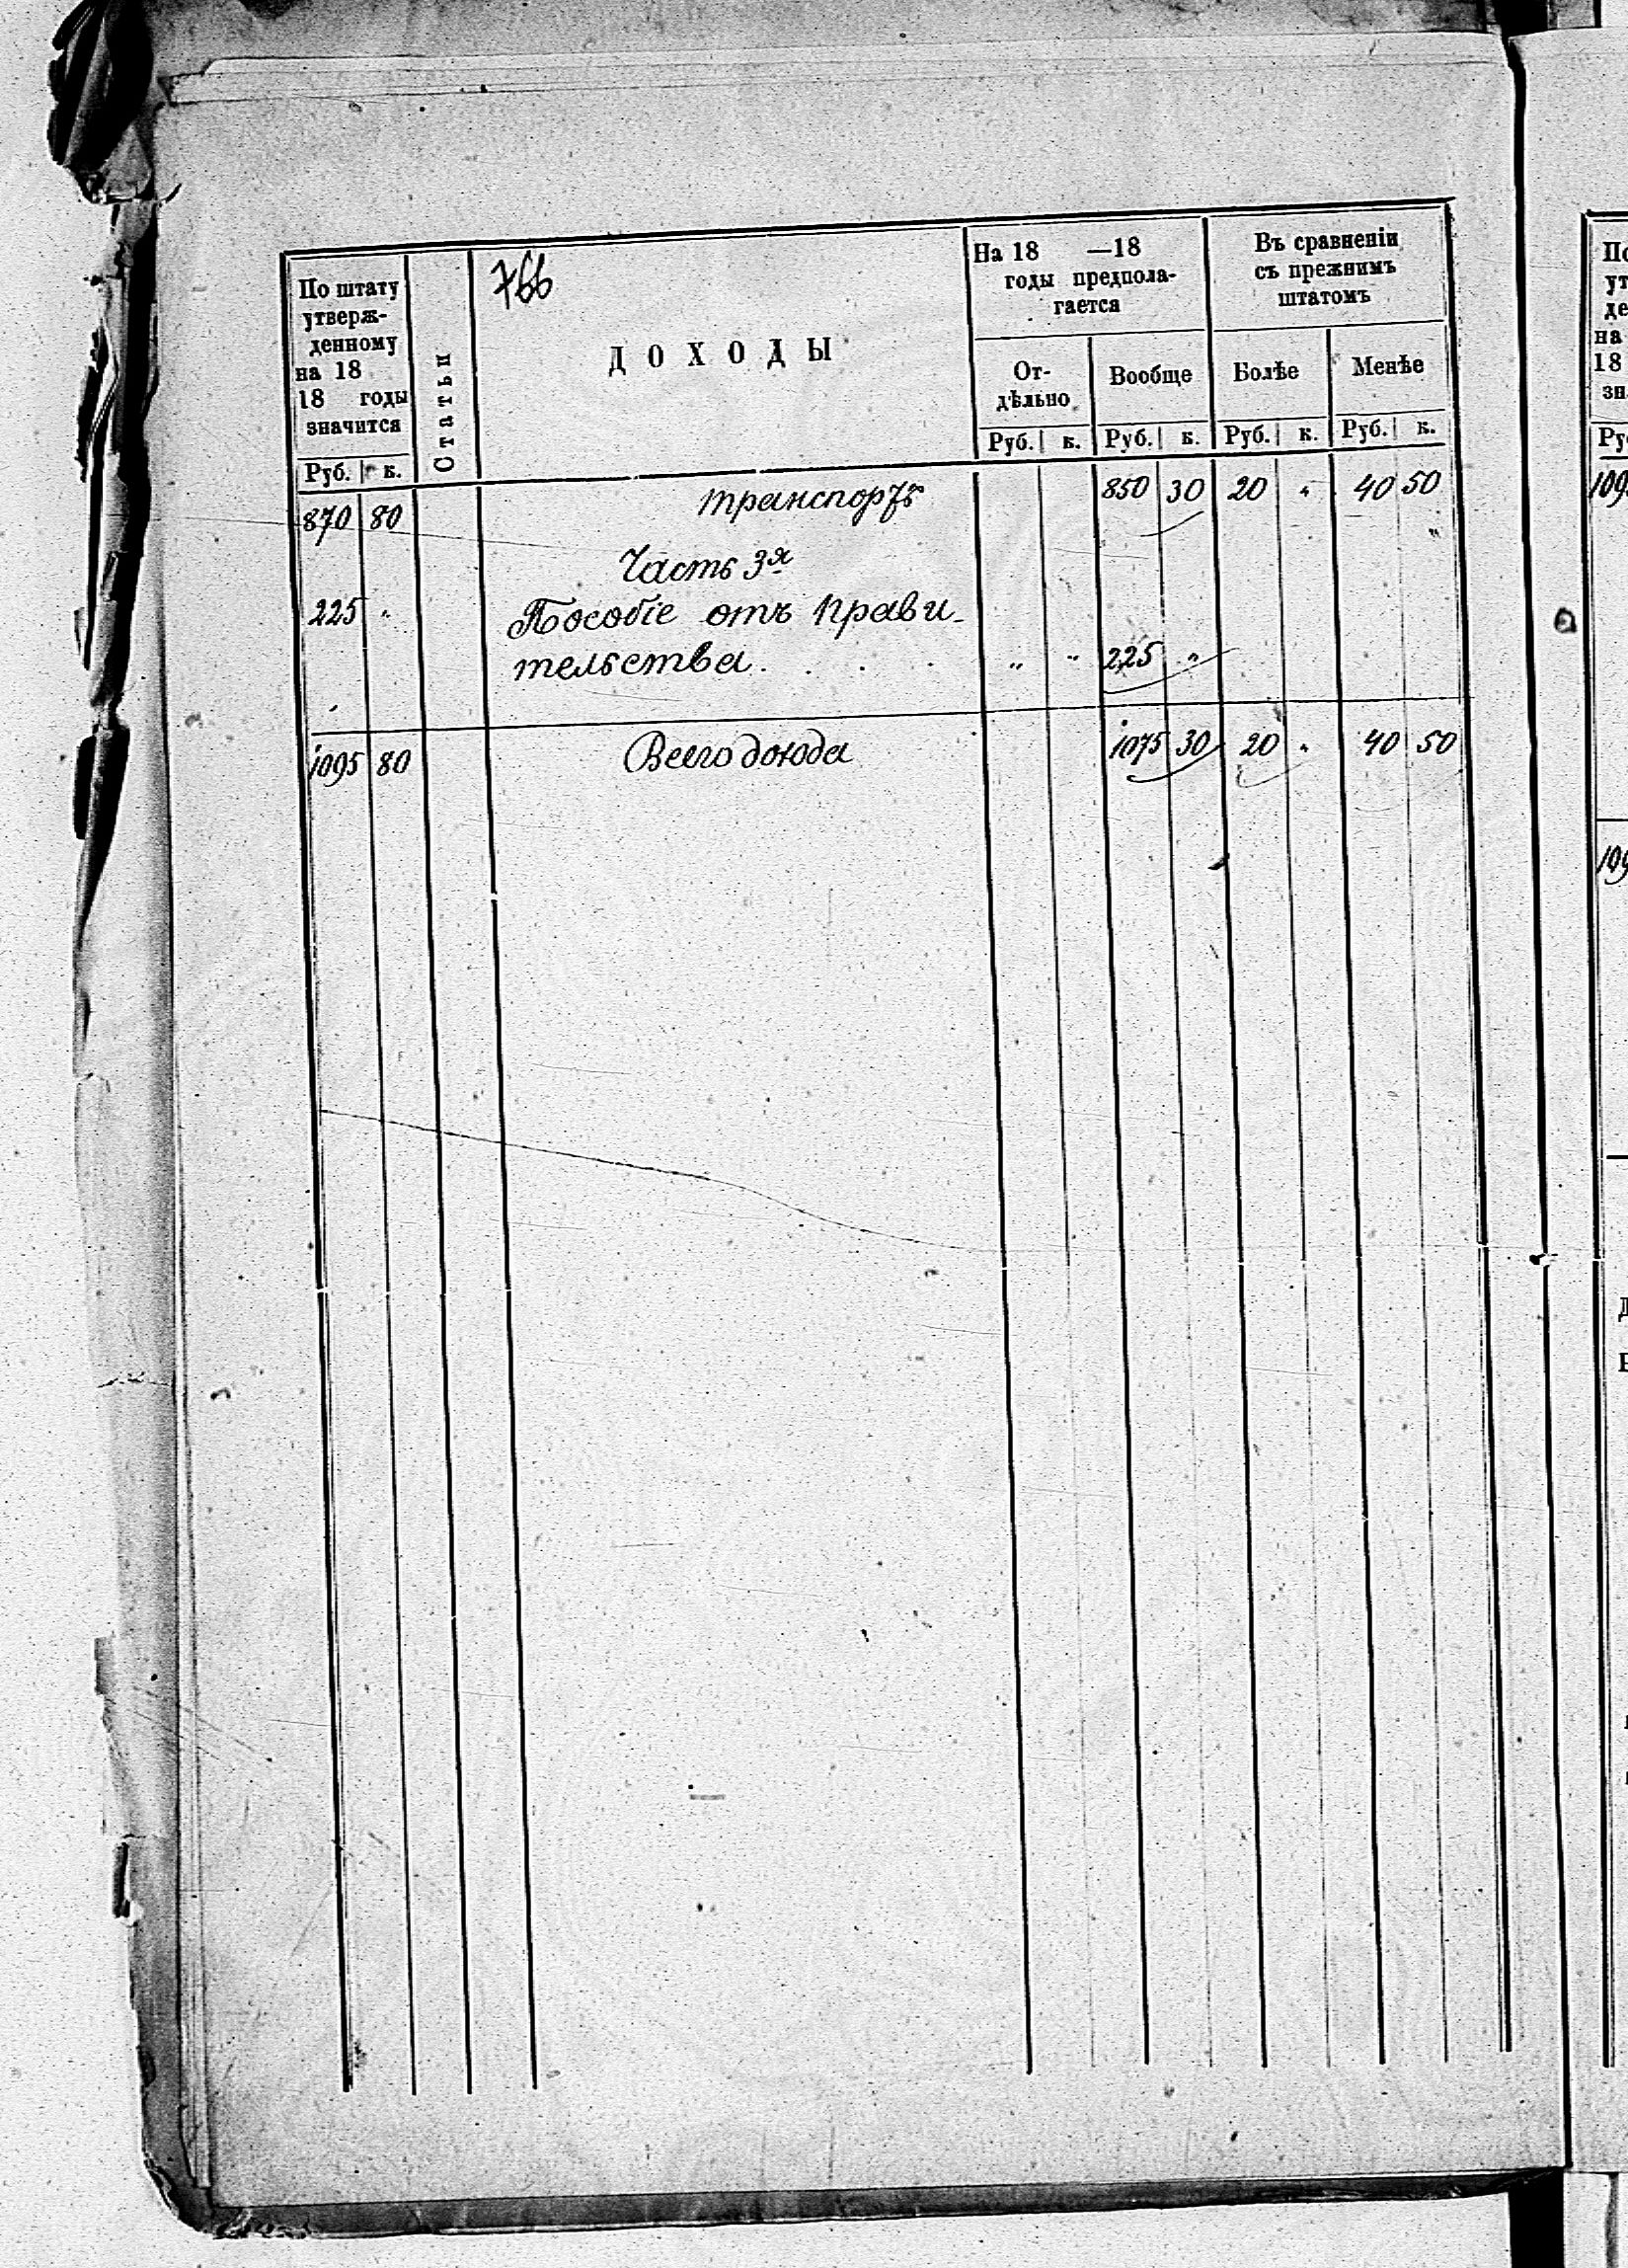 766
По штату
утверж-
денному
на 18
18 годы
значится
Руб. к.
Статьи
ДОХОДЫ
На 18 —18
годы предпола-
гается
От-
дѣльно
Руб. к.
Вообще
Руб. к.
Въ сравненіи
съ прежнимъ
штатомъ
Болѣе
Руб. к.
Менѣе
Руб. к.
870 80 транспортъ 850 30 20 „ 40 50
„
Часть 3я
225 „ Пособіе отъ Прави-
тельства . . . „ „ 225 „
1095 80 Всего дохода 1075 30 20 „ 40 50